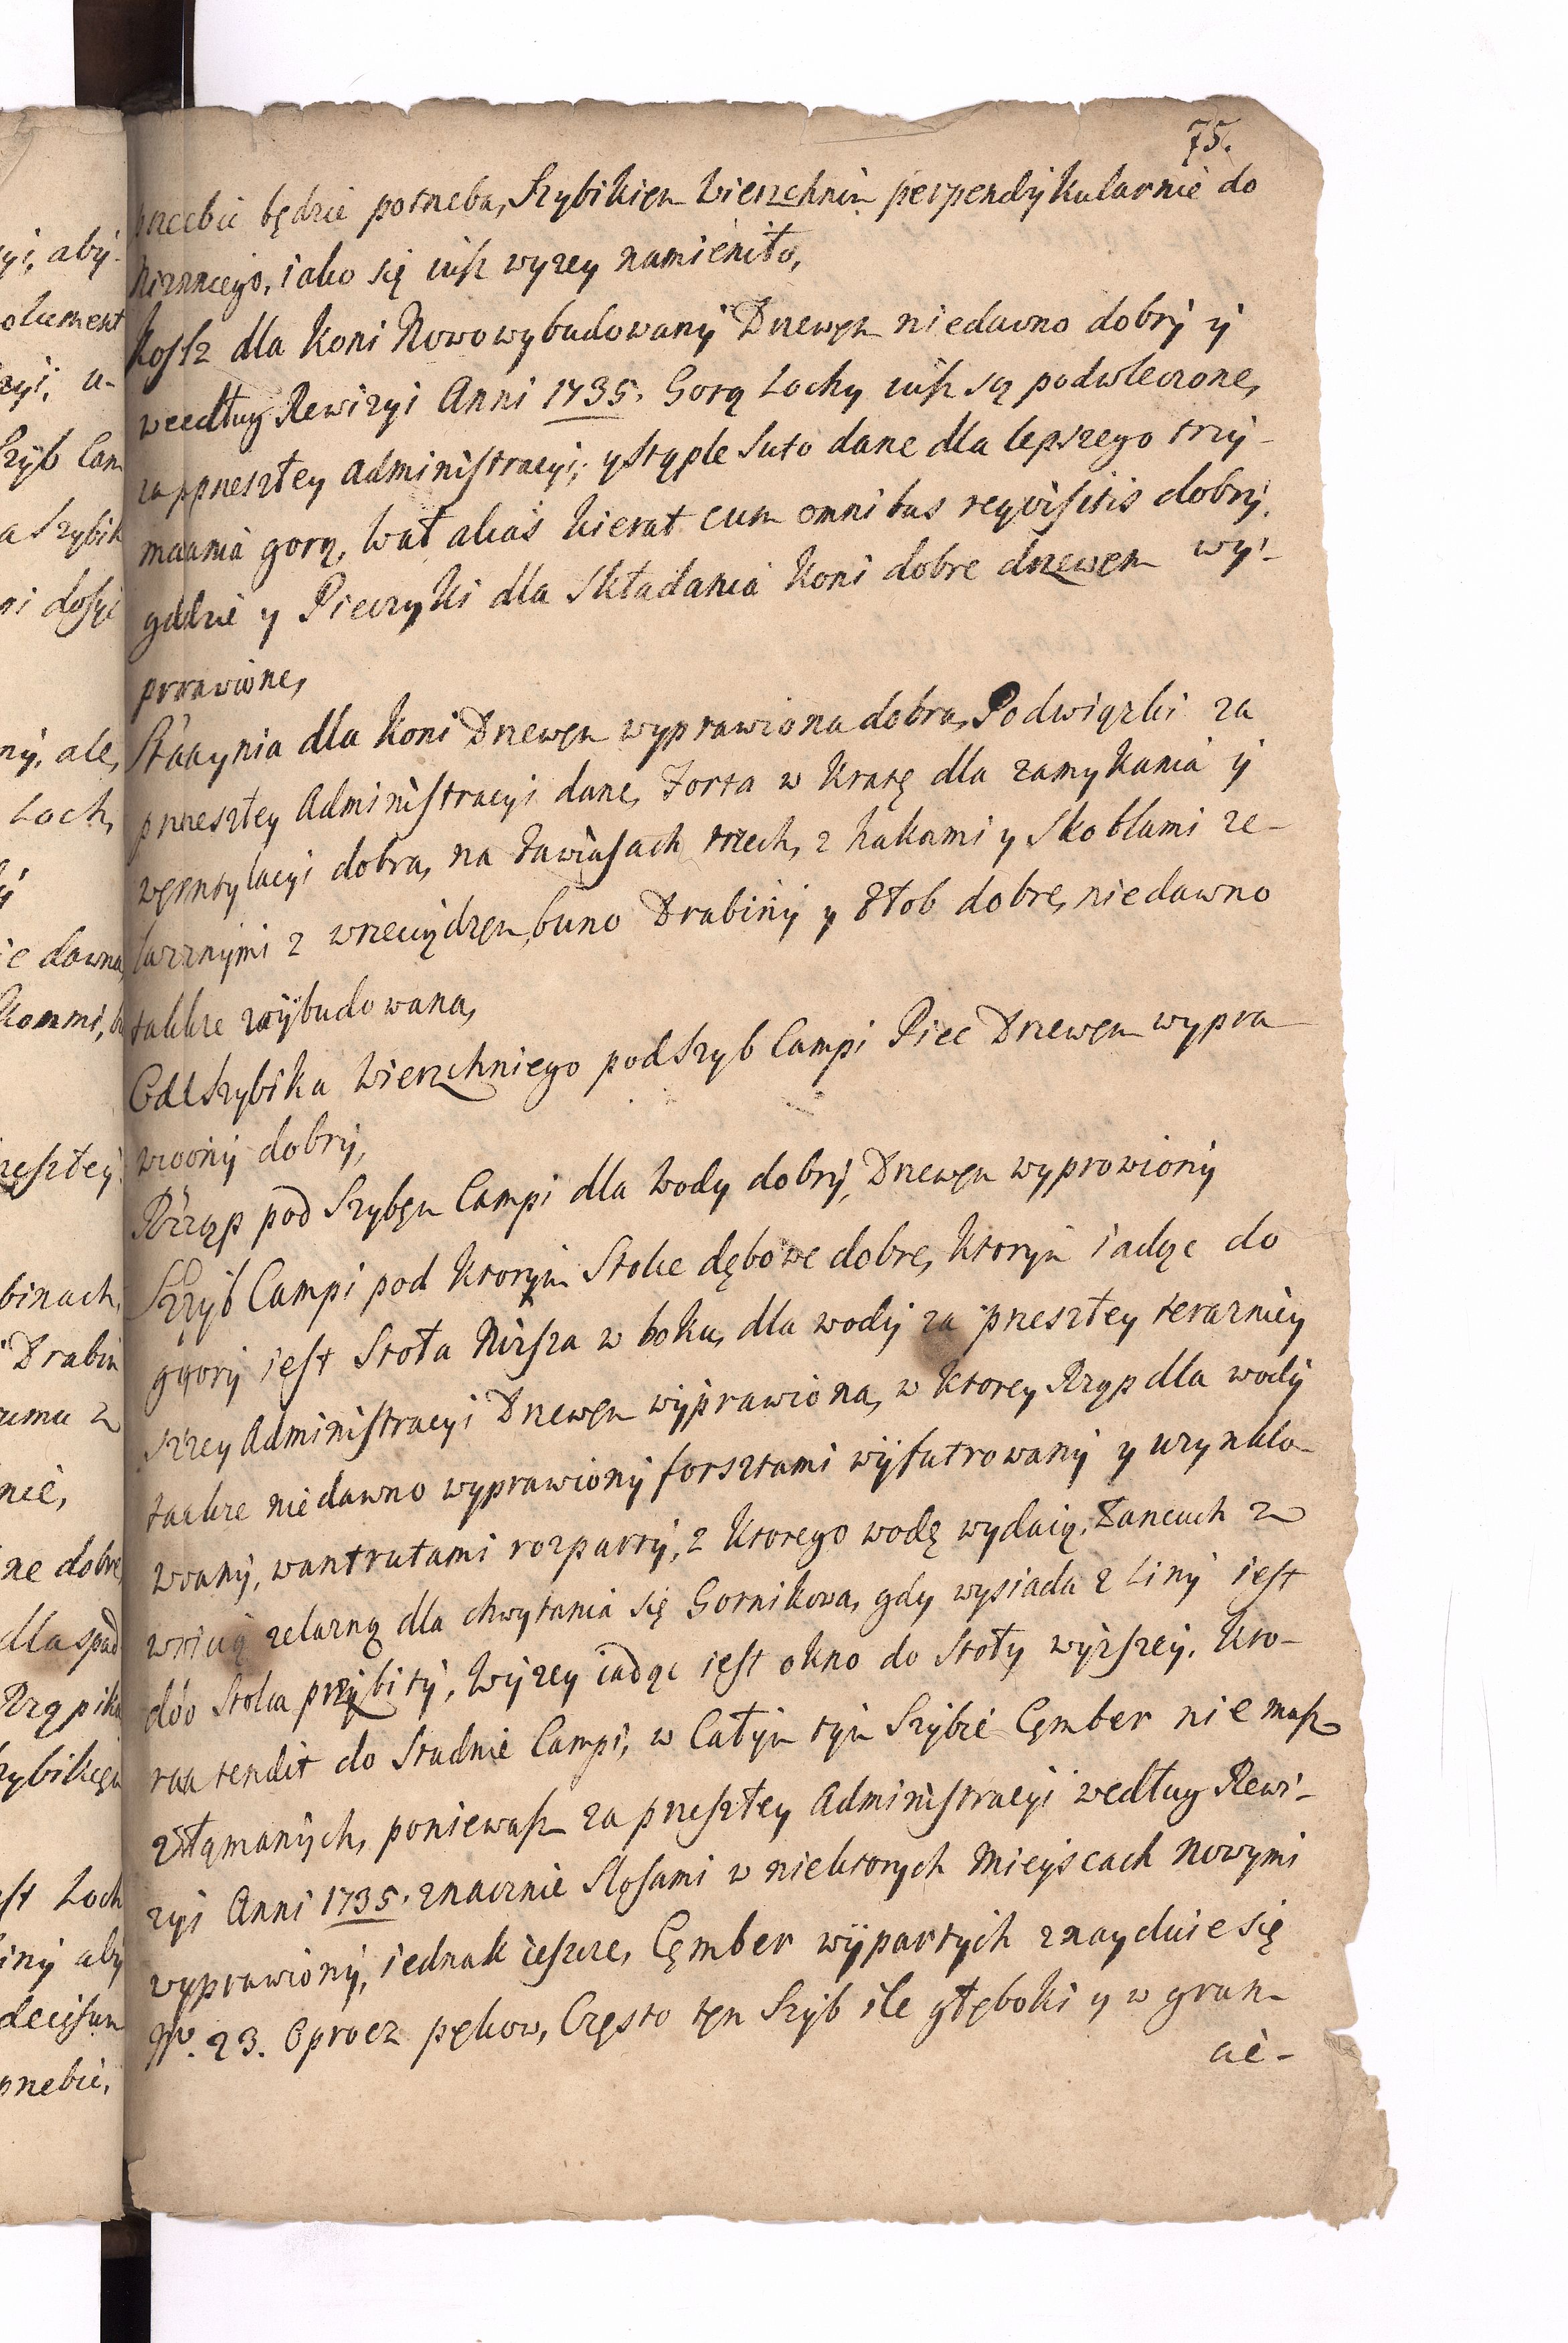 75.
przebić będzie potrzeba, Szybikiem Wierzchnim perpendykularnie do
Nizszego, iako się iusz wyzey namieniło,
Koszt dla Koni Nowowybudowany Drzewem niedawno dobry y
według Rewizyi Anni 1735. Gorą Lochy iusz są podwleczone,
za przeszłey Administracyi; y stęple suto dane dla lepszego trzy-
mania gory, Wał alias kierat cum omnibus requisitis dobry,
gdzie y Pieczyki dla składania koni dobre drzewem wy-
prawione,
Staynia dla Koni Drzewem wyprawiona dobra, Podwiązki za
przeszłey Administracyi dane, Forta w kratę dla zamykania y
wentylacyi dobra, na zawiasach trzech, z hakami y skoblami że-
laznymi z wrzeciądzem, buno Drabiny y Złob dobre, niedawno
także wybudowana,
Od Szybika Wierzchniego pod Szyb Campi Piec Drzewem wypra
wiony dobry,
Rząp pod Szybem Campi dla Wody dobry, Drzewem wyprowiony
Szyb Campi pod ktorym Stolce dębowe dobre, ktorym iadąc do
gory iest Stoła Nizsza w boku, dla wody za przeszłey terazniey
szey Administracyi Drzewem wyprawiona, w ktorey Rząp dla wody
także niedawno wyprawiony forsztami wyfutrowany y uzynklo-
wany, wantrutami rozparty, z ktorego wodę wydaią, Łancuch z
wricą zelazną dla chwytania się Gornikowa, gdy wysiada z Liny iest
do Stolca przybity, Wyzey iadąc iest okno do Stoły wyzszey, kto-
ra tendit do Studnie Campi, w Całym tym Szybie Cęmber nie masz
złąmanych, poniewasz za przeszłey Administracyi według Rewi-
zyi Anni 1735. znacznie Stosami w niektorych Mieyscach nowymi
wyprawiony, iednak ieszcze, Cęmber wypartych znayduie się
Nro. 23. Oprocz pękow, Często tęn Szyb ile głęboki y w grun-
cie-